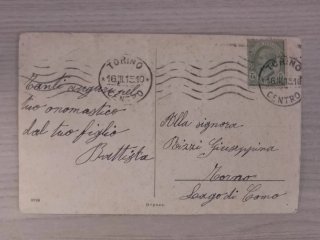 TORINO
16.III.15 19
CENTRO
TORINO
CENTRO
Tanti auguri pelo
tuo onomastico
dal tuo figlio
Battista
Alla signora
Bizzi Giuseppina
Torno
Lago di Como